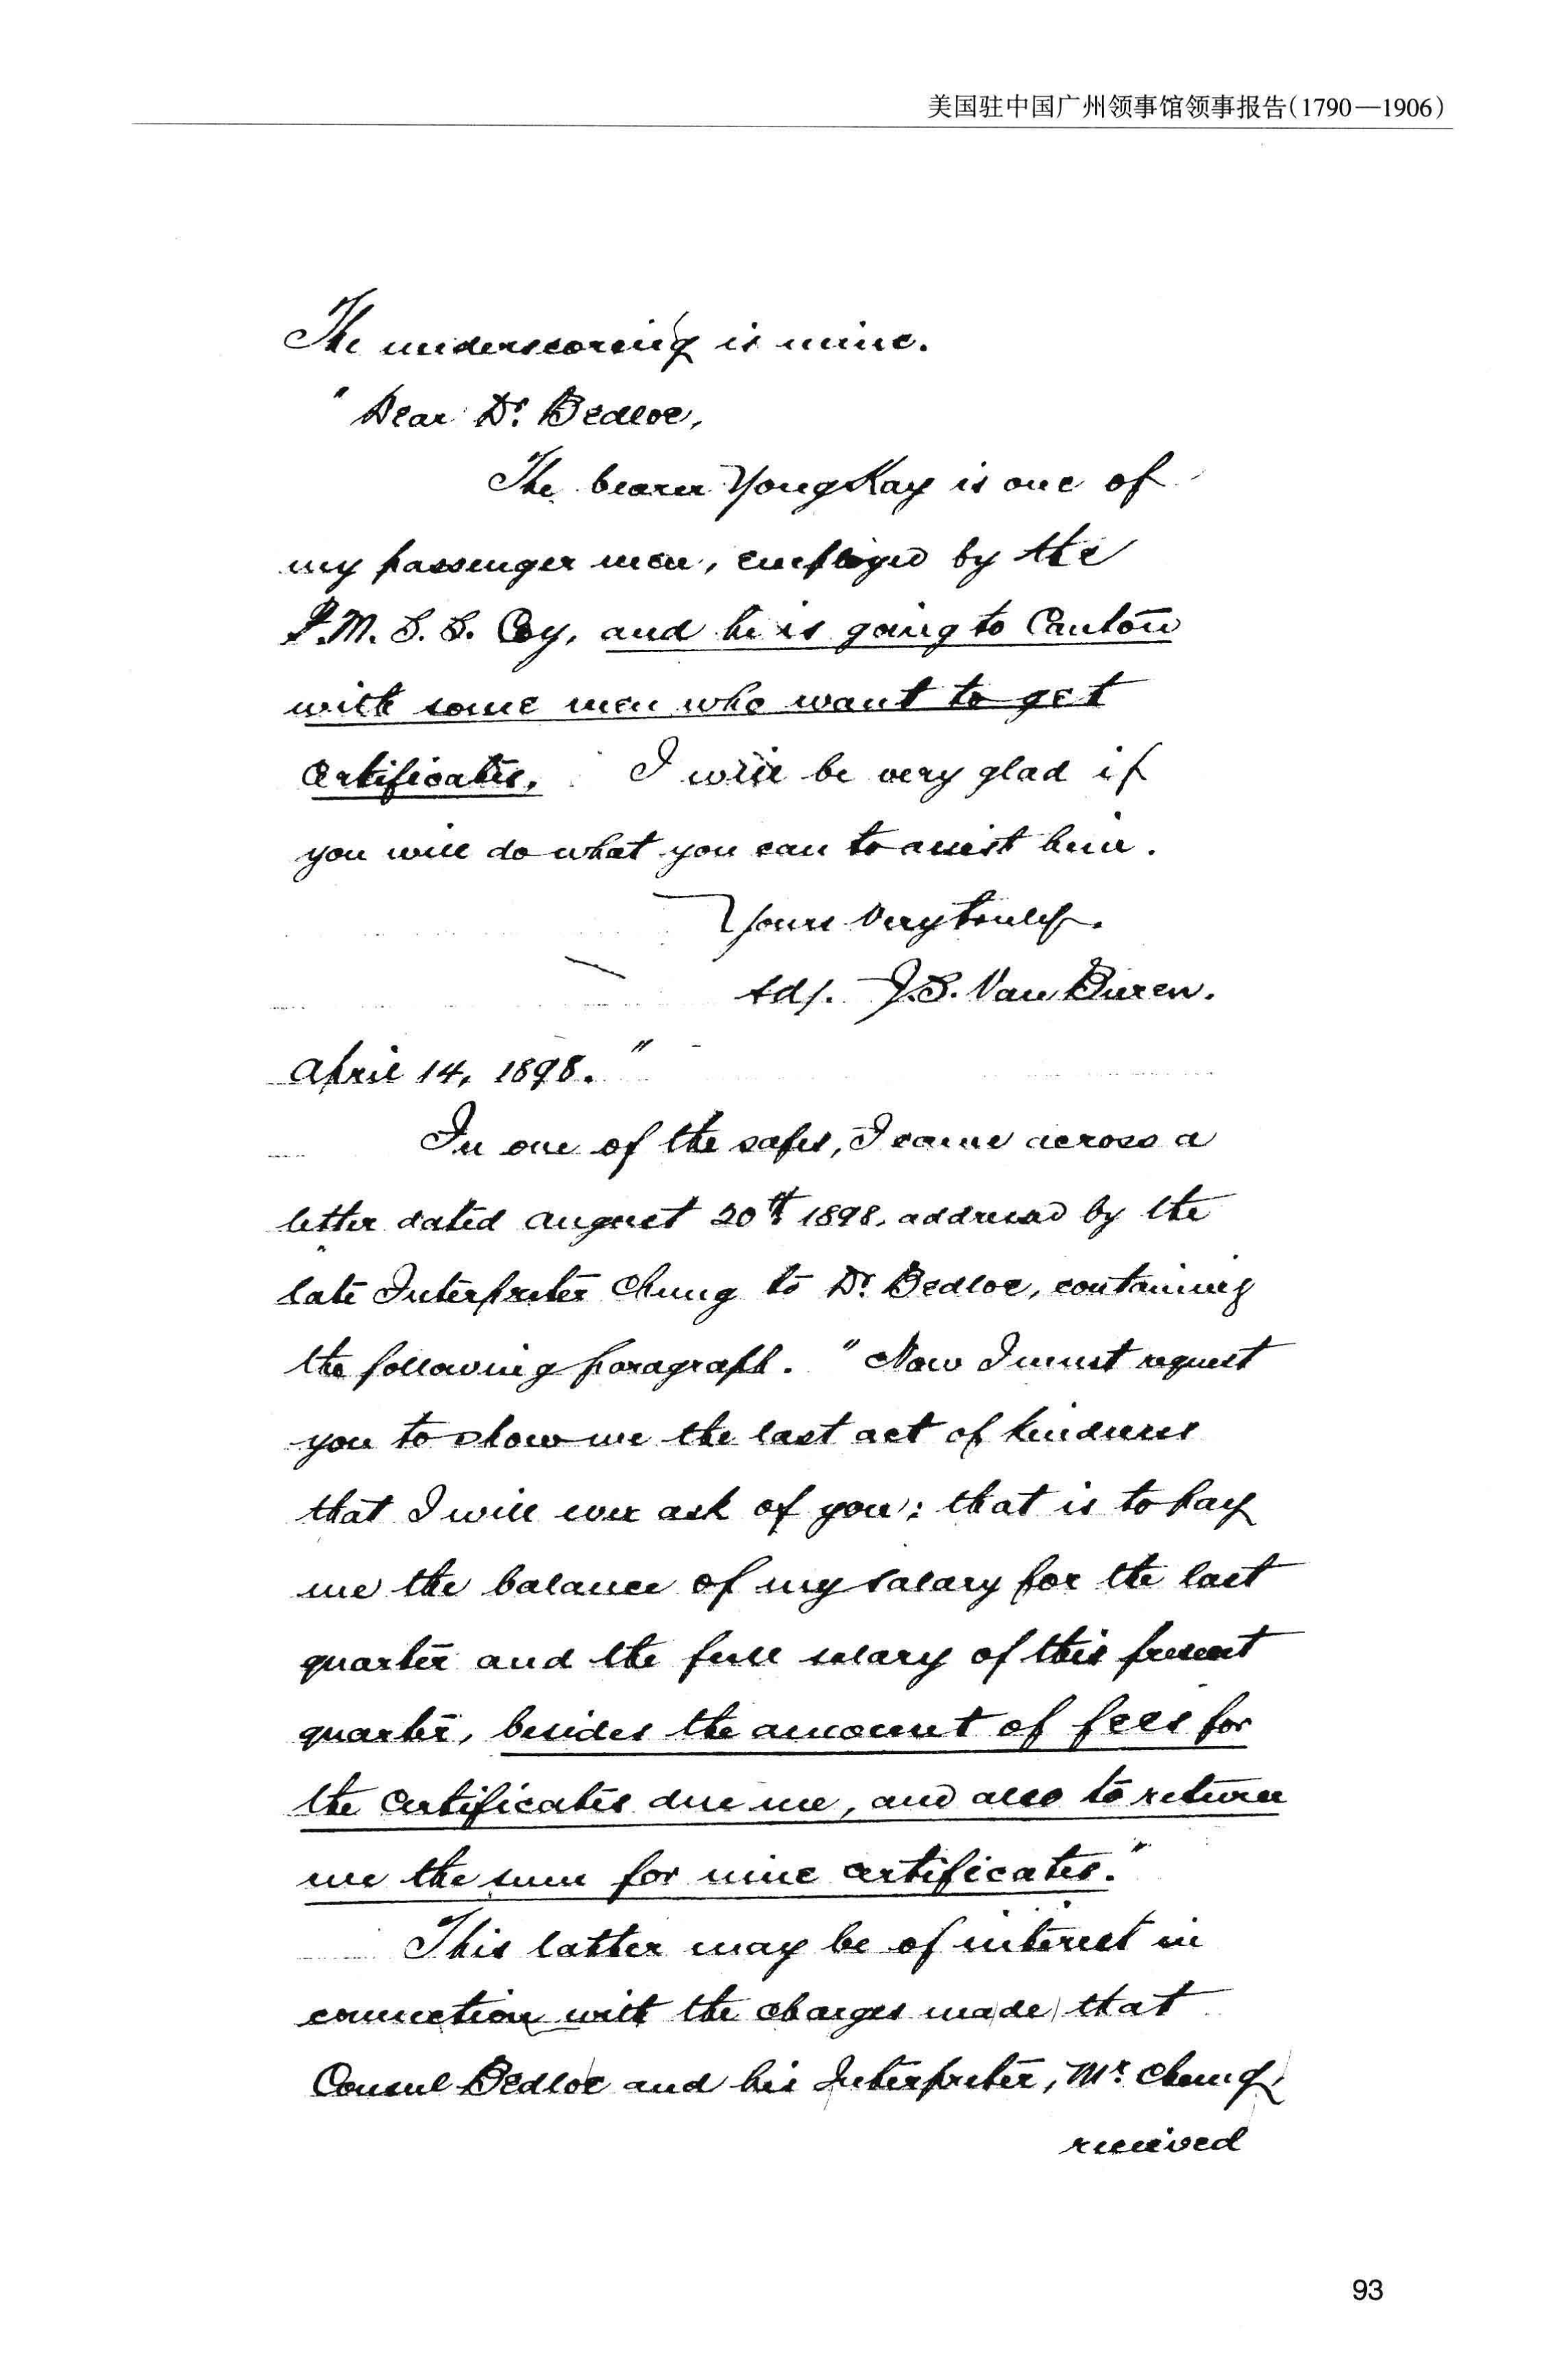 美国驻中国广州领事馆领事报告(1790—1906)
The underscoring is mine.
"Dear Dr. Bedloe,
The bearer Yong Kay is one of
my passenger men, employed by the
P.M.S.S. Coy, and he is going to Canton
with some men who want to get
certificates. I will be very glad if
you will do what you can to assist him.
Yours very truly.
sd/. J.S. Van Buren.
April 14, 1898."
In one of the safes, I came across a
letter dated August 20th 1898, addressed by the
late Interpreter Chung to Dr. Bedloe, containing
the following paragraph. "Now I must request
you to show me the last act of kindness
that I will ever ask of you: that is to pay
me the balance of my salary for the last
quarter and the full salary of this present
quarter, besides the amount of fees for
the certificates due me, and also to return
me the sum for nine certificates."
This latter may be of interest in
connection with the charges made that
Consul Bedloe and his Interpreter, Mr. Chung,
received
93